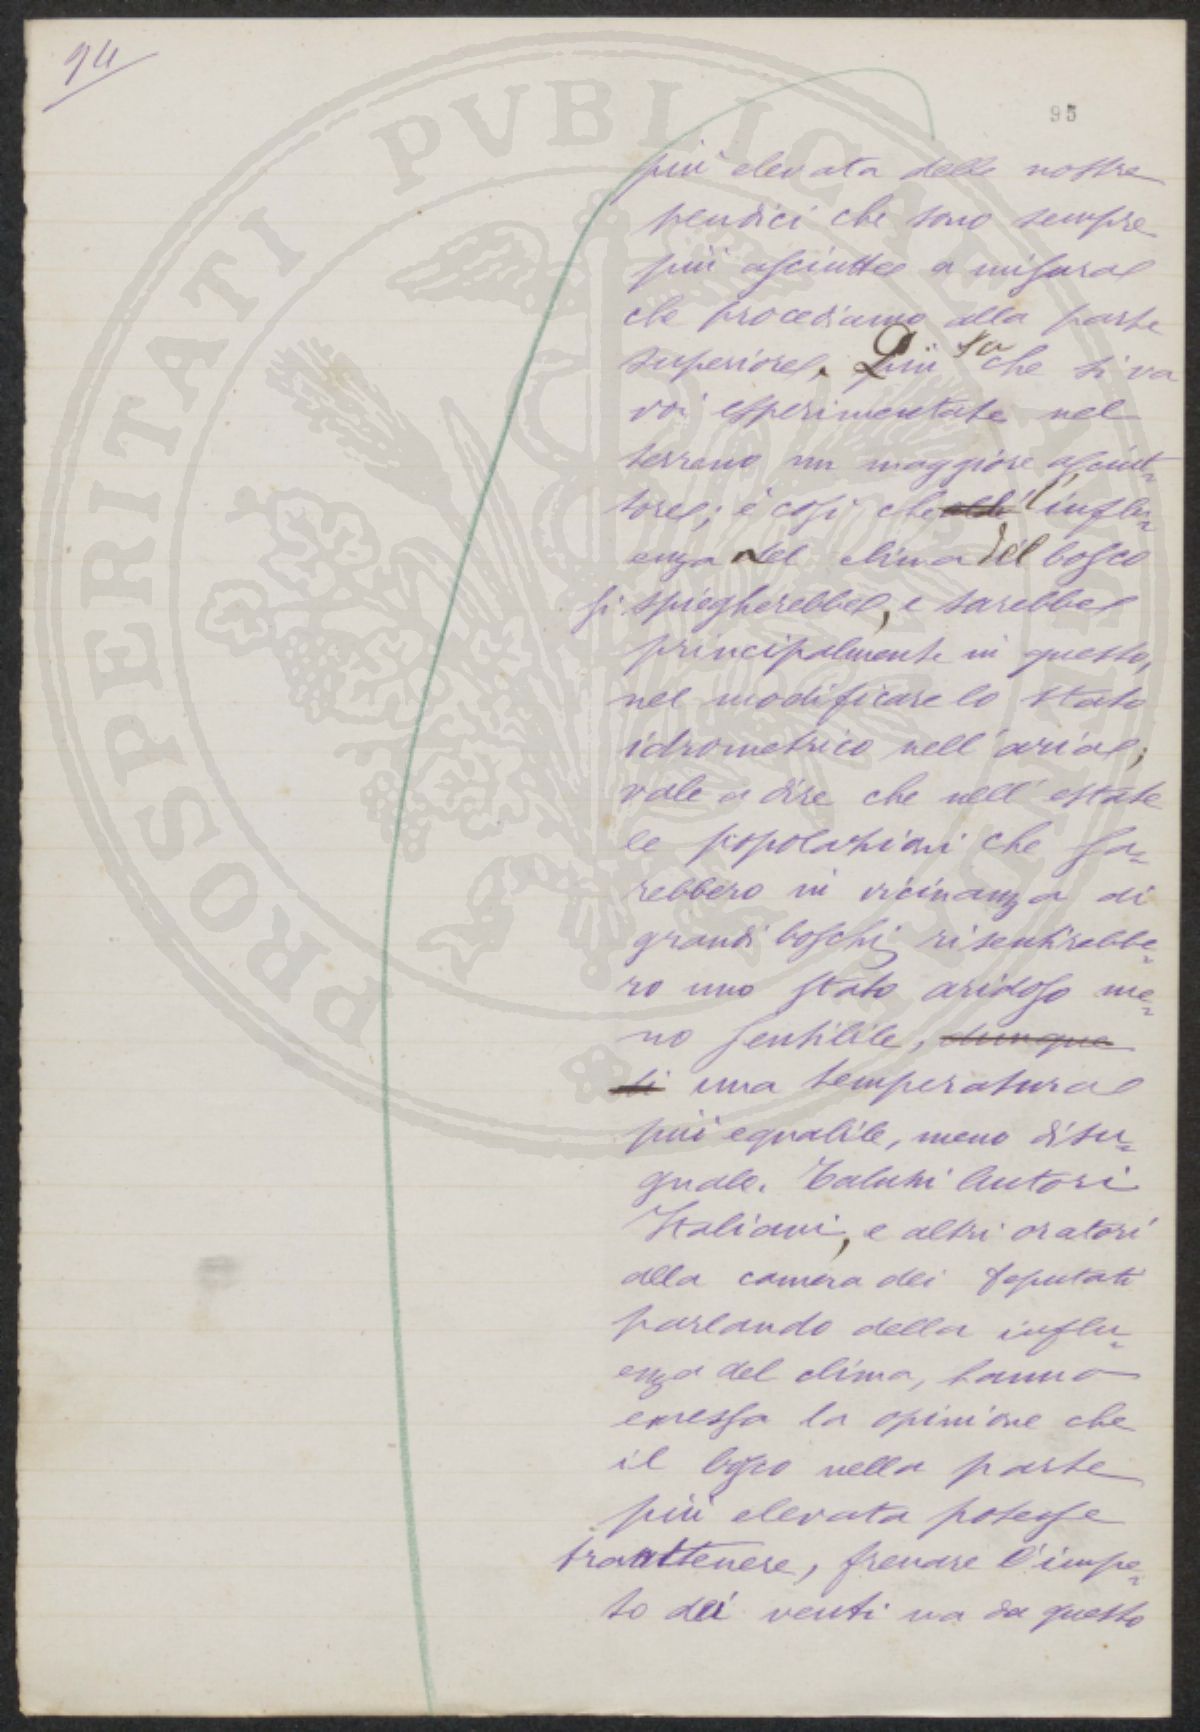 94
95
più elevata delle nostre
pendici che sono sempre
più asciutte a misura
che procediamo alla parte
superiore. Più su che si va
voi esperimentate nel
terreno un maggiore asciut=
tore; è così che l'influ=
enza del clima del bosco
si spiegherebbe, e sarebbe
principalmente in questo,
nel modificare lo stato
idrometrico nell'aria;
vale a dire che nell'estate
le popolazioni che sa=
rebbero in vicinanza di
grandi boschi risentirebbe=
ro uno stato aridoso me=
no sentibile, dunque
di una temperatura
più equabile, meno disu=
guale. Taluni Autori
Italiani, e altri oratori
alla camera dei Deputati
parlando della influ=
enza del clima, hanno
emessa la opinione che
il bosco nella parte
più elevata potesse
trattenere, frenare l'impe=
to dei venti ma da questo
PROSPERITATI PVBLICAE